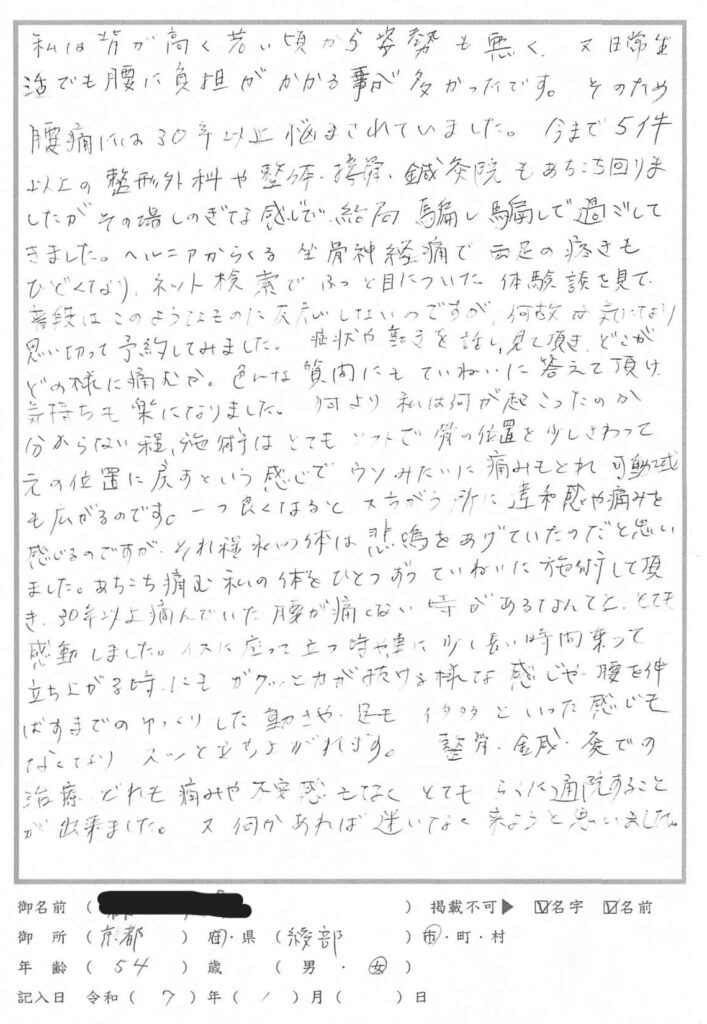 私は背が高く若い頃から姿勢も悪く、又日常生
活でも腰に負担がかかる事が多かったです。そのため
腰痛には30年以上悩まされていました。今まで5件
以上の整形外科や整体・接骨・鍼灸院もあちこち回りま
したがその場しのぎな感じで、結局騙し騙しで過ごして
きました。ヘルニアからくる坐骨神経痛で両足の痛きも
ひどくなり、ネット検索でふっと目についた体験談を見て、
普段はこのようなものに反応しないのですが、何故か気になり
思い切って予約してみました。症状や動きを話し、見て頂き、どこが
どの様に痛むか。色んな質問にもていねいに答えて頂け
気持ちも楽になりました。何より私は何が起こったのか
分からない程、施術はとてもソフトで骨の位置を少しさわって
元の位置に戻すという感じでウソみたいに痛みもとれ可動域
も広がるのです。一つ良くなると又ちがう所に違和感や痛みを
感じるのですが、それ程私の体は悲鳴をあげていたのだと思い
ました。あちこち痛む私の体をひとつずつていねいに施術して頂
き、30年以上痛んでいた腰が痛くない時があるなんてと、とても
感動しました。イスに座って立つ時や車に少し長い時間乗って
立ち上がる時にもガクッと力が抜ける様な感じや腰を伸
ばすまでのゆっくりした動きや、足もイタタタといった感じも
なくなりスッと立ち上がれます。整骨・鍼・灸での
治療どれも痛みや不安感もなくとてもらくに通院すること
が出来ました。又何かあれば迷いなく来ようと思いました。
御名前（ ） 掲載不可▶ ☑名字 ☑名前
御所（京都）府・県（綾部）市・町・村
年齢（54）歳（男・女）
記入日 令和（7）年（1）月（ ）日